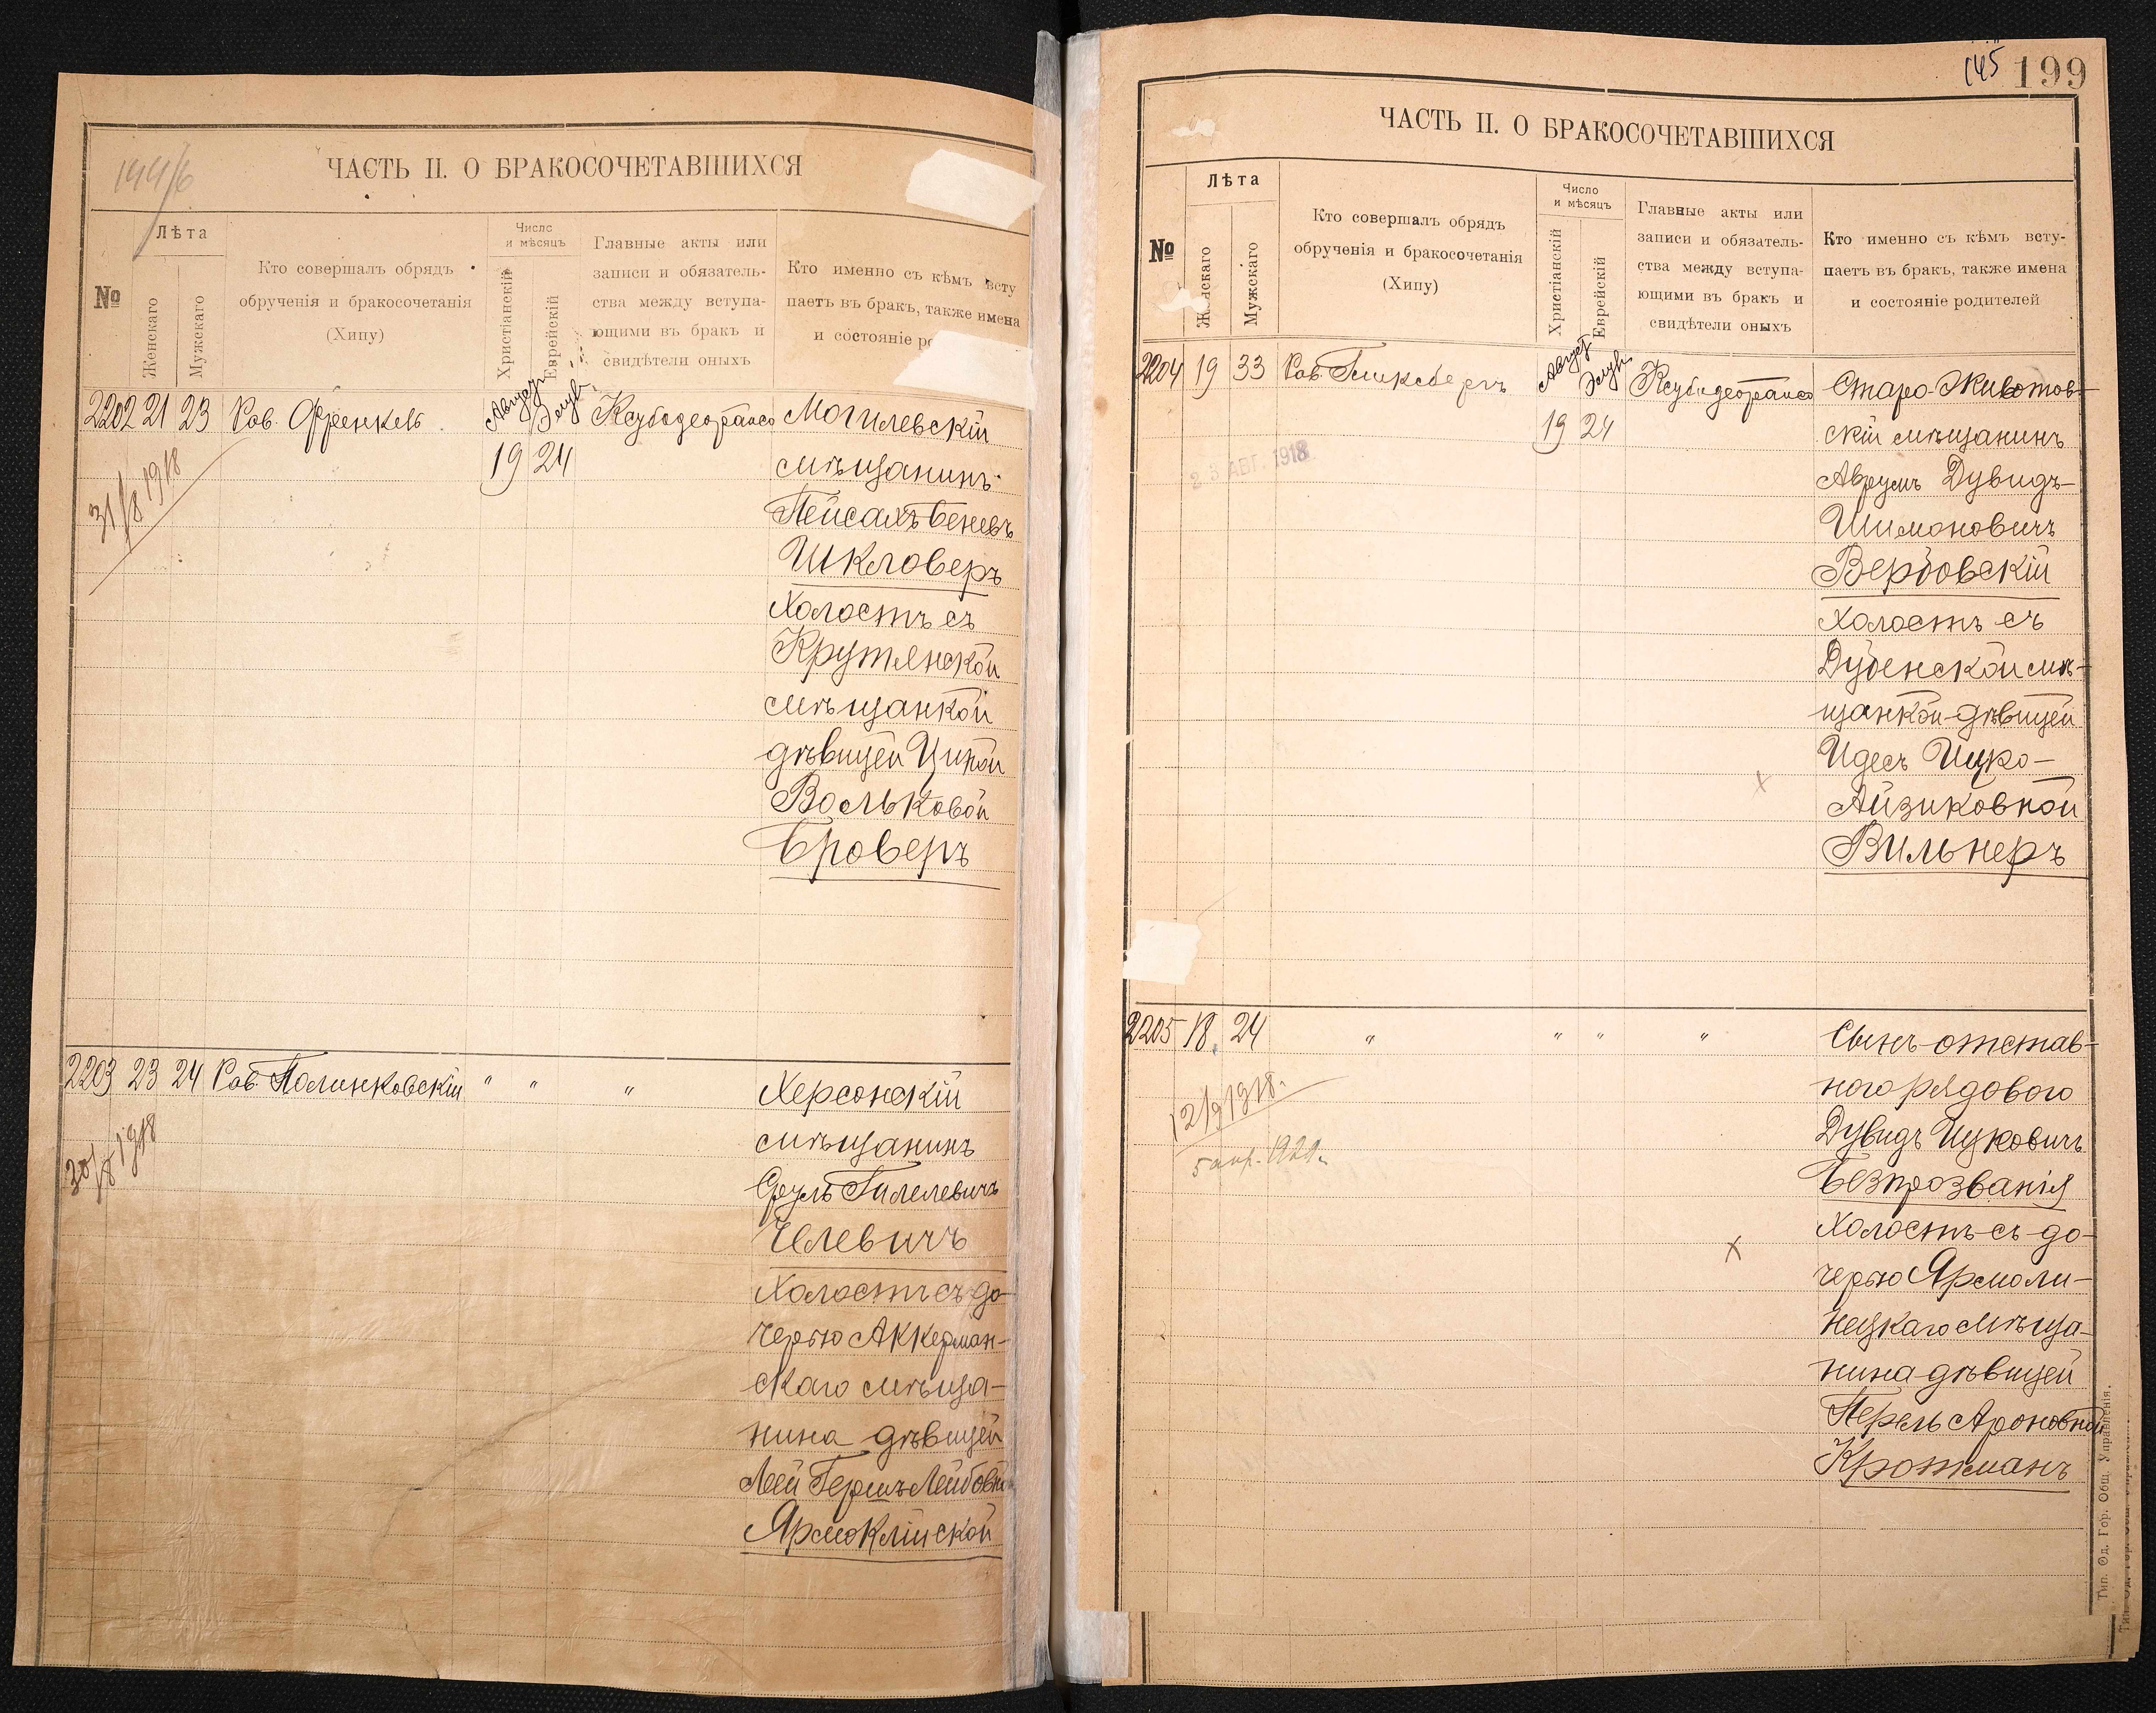 144/6
ЧАСТЬ II. О БРАКОСОЧЕТАВШИХСЯ
№
Лѣта
Женскаго
Мужскаго
Кто совершалъ обрядъ
обрученія и бракосочетанія
(Хипу)
Число
и мѣсяцъ
Христіанскій
Еврейскій
Главные акты или
записи и обязатель-
ства между вступа-
ющими въ бракъ и
свидѣтели оныхъ
Кто именно съ кѣмъ всту
паетъ въ бракъ, также имена
и состояніе ро
2202 21 23 Рав. Френкель Августъ Элулъ Ксубодеорайсо Могилевскій
19 24 мѣщанинъ
31/8 1918
Пейсахъ Беневъ
Шкловеръ
Холостъ съ
Крутянской
мѣщанкой
дѣвицей Ципой
Вольковой
Броверъ
2203 23 24 Рав. Полинковскій " " " Херсонскій
30/8 1918
мѣщанинъ
Сруль Гилелевичъ
Челевичъ
Холостъ съ до-
черью Аккерман-
скаго мѣща-
нина дѣвицей
Леей Гершъ-Лейбовн
Ярмоклійской
145 199
ЧАСТЬ II. О БРАКОСОЧЕТАВШИХСЯ
№
Лѣта
Женскаго
Мужскаго
Кто совершалъ обрядъ
обрученія и бракосочетанія
(Хипу)
Число
и мѣсяцъ
Христіанскій
Еврейскій
Главные акты или
записи и обязатель-
ства между вступа-
ющими въ бракъ и
свидѣтели оныхъ
Кто именно съ кѣмъ всту-
паетъ въ бракъ, также имена
и состояніе родителей
2204 19 33 Рав. Гликсбергъ Августъ Элулъ Ксубодеорайсо Старо-Животов-
19 24 скій мѣщанинъ
23 АВГ. 1918
Аврумъ Дувидъ-
Шимоновичъ
Вербовскій
Холостъ съ
Дубенской мѣ-
щанкой-дѣвицей
Идесъ Ицко-
Айзиковной
Вильнеръ
2205 18 24 " " " " Сынъ отстав-
12/9 1918 г.
5 апр. 1920 г.
ного рядового
Дувидъ Ицковичъ
Безпрозванія
Холостъ съ до-
черью Ярмоли-
нецкаго мѣща-
нина дѣвицей
Перель Ароновной
Кротманъ
Тип. Од. Гор. Общ. Управленія.